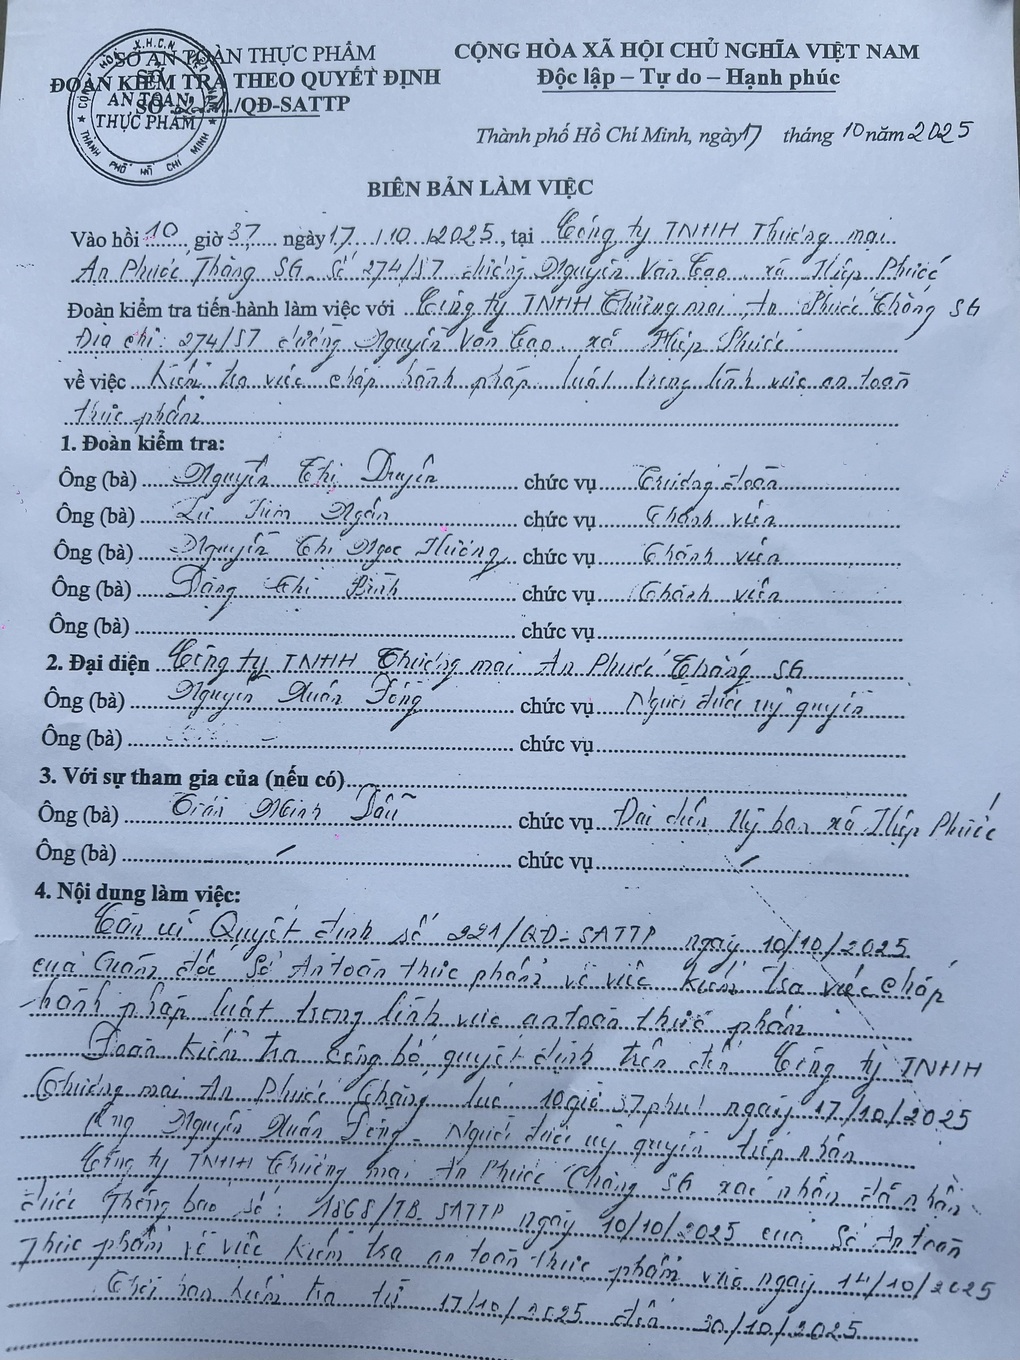 SỞ AN TOÀN THỰC PHẨM
ĐOÀN KIỂM TRA THEO QUYẾT ĐỊNH
SỐ 221/QĐ-SATTP
CỘNG HÒA XÃ HỘI CHỦ NGHĨA VIỆT NAM
Độc lập – Tự do – Hạnh phúc
X.H.C.N
SỞ
AN TOÀN
THỰC PHẨM
THÀNH PHỐ HỒ CHÍ MINH
Thành phố Hồ Chí Minh, ngày 17 tháng 10 năm 2025
BIÊN BẢN LÀM VIỆC
Vào hồi 10 giờ 37 ngày 17/10/2025, tại Công ty TNHH Thương mại
An Phước Thắng SG. Số 274/57 đường Nguyễn Văn Tạo xã Hiệp Phước
Đoàn kiểm tra tiến hành làm việc với Công ty TNHH Thương mại An Phước Thắng SG
Địa chỉ: 274/57 đường Nguyễn Văn Tạo xã Hiệp Phước
về việc kiểm tra việc chấp hành pháp luật trong lĩnh vực an toàn
thực phẩm
1. Đoàn kiểm tra:
Ông (bà) Nguyễn Thị Duyên chức vụ Trưởng đoàn
Ông (bà) Lư Kim Ngân chức vụ Thành viên
Ông (bà) Nguyễn Thị Ngọc Hường chức vụ Thành viên
Ông (bà) Đặng Thị Bình chức vụ Thành viên
Ông (bà) chức vụ
2. Đại diện Công ty TNHH Thương mại An Phước Thắng SG
Ông (bà) Nguyễn Xuân chức vụ Người được uỷ quyền
Ông (bà) chức vụ
3. Với sự tham gia của (nếu có)
Ông (bà) Trần Minh chức vụ Đại diện Uỷ ban xã Hiệp Phước
Ông (bà) chức vụ
4. Nội dung làm việc:
Căn cứ Quyết định số 221/QĐ-SATTP ngày 10/10/2025
của Giám đốc Sở An toàn thực phẩm về việc kiểm tra việc chấp
hành pháp luật trong lĩnh vực an toàn thực phẩm
Đoàn kiểm tra công bố quyết định trên đến Công ty TNHH
Thương mại An Phước Thắng lúc 10 giờ 37 phút ngày 17/10/2025
Ông Nguyễn Xuân - Người được uỷ quyền tiếp nhận
Công ty TNHH Thương mại An Phước Thắng SG xác nhận đã nhận
được Thông báo số: 1868/TB-SATTP ngày 10/10/2025 của Sở An toàn
Thực phẩm về việc kiểm tra an toàn thực phẩm vào ngày 14/10/2025
Thời hạn kiểm tra từ 17/10/2025 đến 30/10/2025